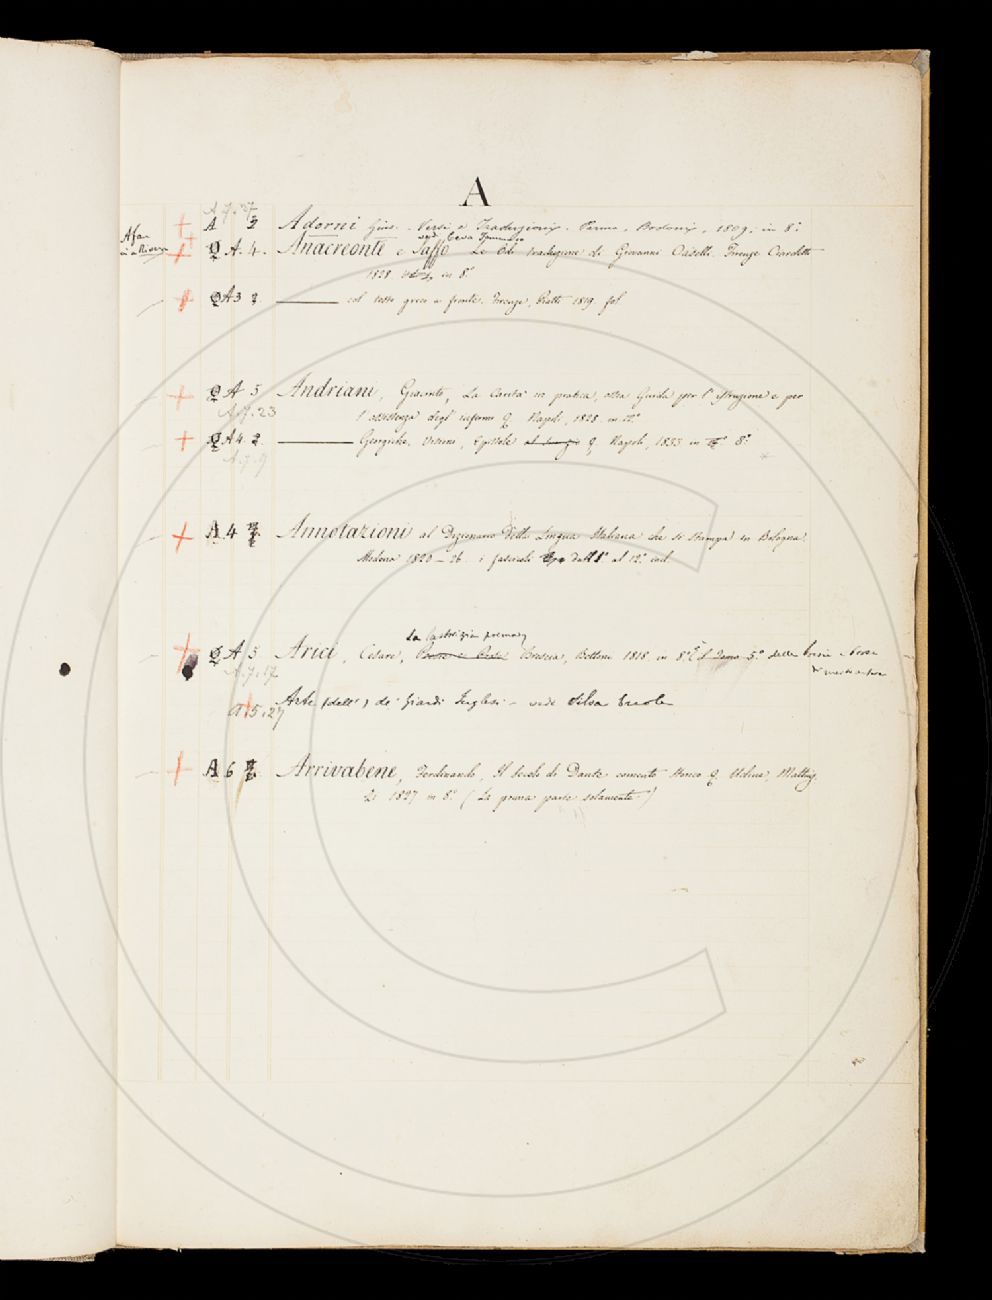 A
A.7.27
A 2 Adorni Gius. Versi e Traduzioni. Parma, Bodoni, 1809. in 8.°
vedi Ceva Tommaso
Q A. 4. Anacreonte e Saffo Le Odi traduzione di Giovanni Caselli. Firenze Ciardetti
1828 in 8.°
Q A 3 col testo greco a fronte. Firenze, Piatti 1819. fol
Q A 5 Andriani, Giacinto, La Carità in pratica, ossia Guida per l'istruzione e per
A.7.23 l'assistenza degl'infermi Q. Napoli, 1828. in 12.°
Q A 4 2 Georgiche, Epistole Q. Napoli, 1833 in 8.°
A.7.9
A 4 Annotazioni al Dizionario della Lingua Italiana che si stampa in Bologna.
Modena 1820-26. i fascicoli dall'1.° al 12.° incl.
La
Q A 5 Arici, Cesare, Brescia, Bettoni 1818 in 8.° È il Tomo 5.° delle
A.7.17
A 5.27 Arte (dell') de' Giardi Inglesi - vedi Silva Ercole
A 6 Arrivabene, Ferdinando, Il Secolo di Dante comento storico Q. Udine, Mattiuz-
zi 1827 in 8.° (La prima parte solamente)